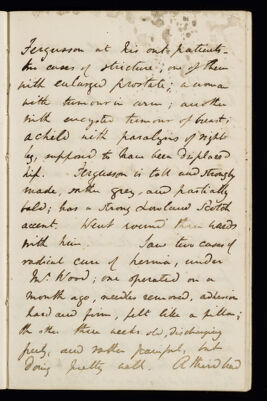 Fergusson at his out-patients -
two cases of stricture; one of them
with enlarged prostate; a woman
with tumour in arm; another
with encysted tumour of breast;
a child with paralysis of right
leg, supposed to have been displaced
hip. Fergusson is tall and strongly
made, rather grey, and partially
bald; has a strong Lowland Scotch
accent. Went round three wards
with him. Saw two cases of
radical cure of hernia, under
Mr. Wood; one operated on a
month ago, needles removed, adhesion
hard and firm, felt like a pillar;
the other three weeks old, discharging
freely, and rather painful, but
doing pretty well. A third had